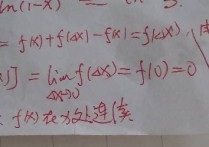 ln(1-x)
= f(x)+f(Δx)-f(x)=f(Δx)
x)] = lim f(Δx)=f(0)=0
Δx→0
f(x)在x处连续